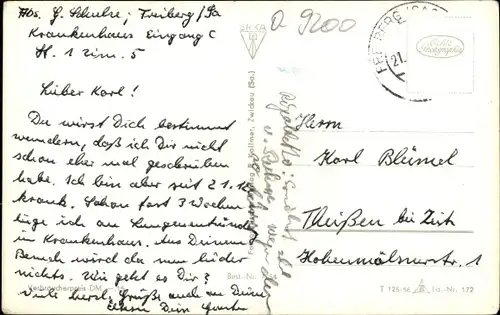 Abs. G. Schulze; Freiberg/Sa
Krankenhaus Eingang C
H. 1 Zim. 5
Lieber Karl!
Du wirst Dich bestimmt
wundern, daß ich Dir nicht
schon eher mal geschrieben
habe. Ich bin aber seit 21.10.
krank. Schon fast 3 Wochen
liege ich an Lungenentzündung
im Krankenhaus. Aus Deinem
Besuch wird da nun leider
nichts. Wie geht es Dir?
Viele herzl. Grüße auch an Deine
Eltern Dein
Verbraucherpreis DM
Best.-Nr.
Zwickau (Sa.)
a 9200
FREIBERG (SACHS)
21.
Echte
Photographie
Herrn
Karl Blümel
Theißen bei Zeitz
Hohenmölsner str. 1
T 125-56
Liz.-Nr. 172